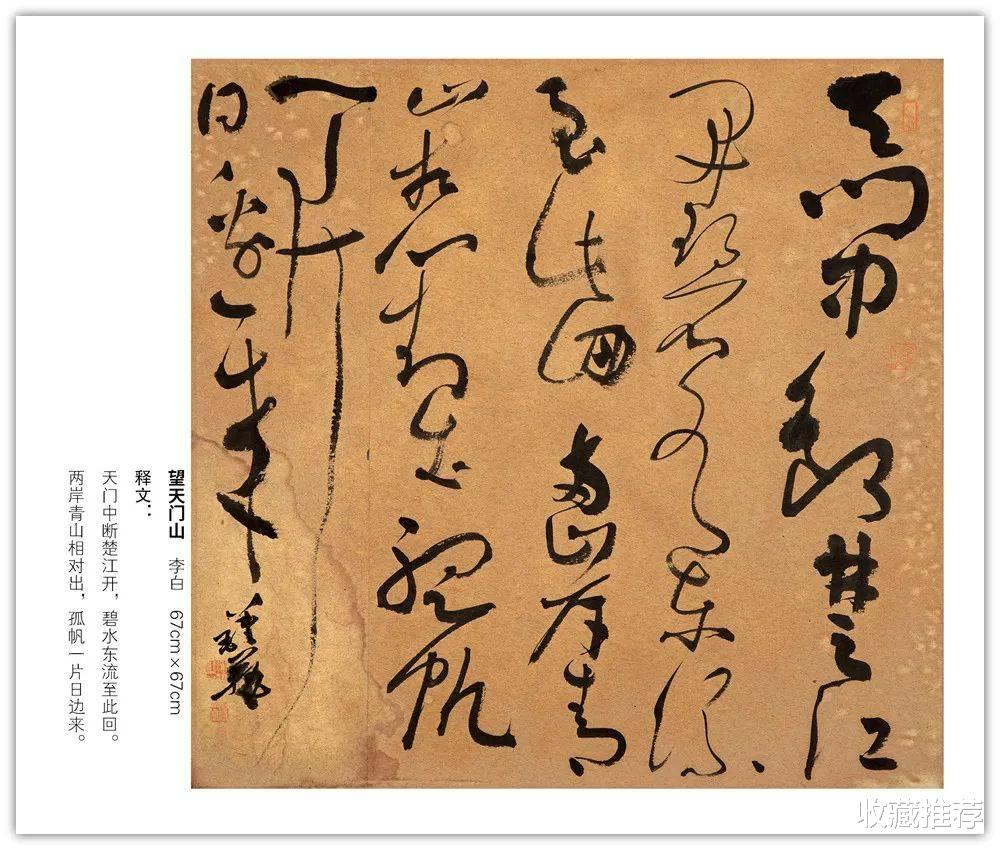 天門中斷楚江
開碧水東流
至此回兩岸青
山相對出孤帆
一片
日邊來
望天门山 李白 67cm×67cm
释文：
天门中断楚江开，碧水东流至此回。
两岸青山相对出，孤帆一片日边来。
收藏推荐